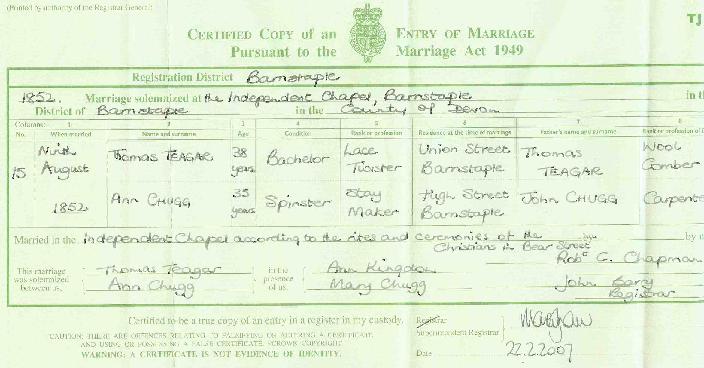 (Printed by authority of the Registrar General)
TJ
CERTIFIED COPY of an ENTRY OF MARRIAGE
Pursuant to the Marriage Act 1949
Registration District Barnstaple
1852. Marriage solemnized at the Independent Chapel, Barnstaple in th
District of Barnstaple in the County of Devon
Columns: 1 2 3 4 5 6 7 8
No. When married Name and surname Age Condition Rank or profession Residence at the time of marriage Father's name and surname Rank or profession
Ninth Thomas TEAGAR 38 Bachelor Lace Union Street Thomas Wool
15 August years Twister Barnstaple TEAGAR Comber
Ann CHUGG 35 Spinster Stay High Street John CHUGG Carpente
1852 years Maker Barnstaple
Married in the Independent Chapel according to the rites and ceremonies of the by
Christians in Bear Street
Robt C. Chapman
This marriage was solemnized between us, Thomas Teagar in the presence of us, Ann Kingdon
Ann Chugg Mary Chugg
John Barry
Registrar
Certified to be a true copy of an entry in a register in my custody. Registrar
Superintendent Registrar
CAUTION: THERE ARE OFFENCES RELATING TO FALSIFYING OR ALTERING A CERTIFICATE
AND USING OR POSSESSING A FALSE CERTIFICATE. ©CROWN COPYRIGHT
WARNING: A CERTIFICATE IS NOT EVIDENCE OF IDENTITY.
Date 22.2.2007